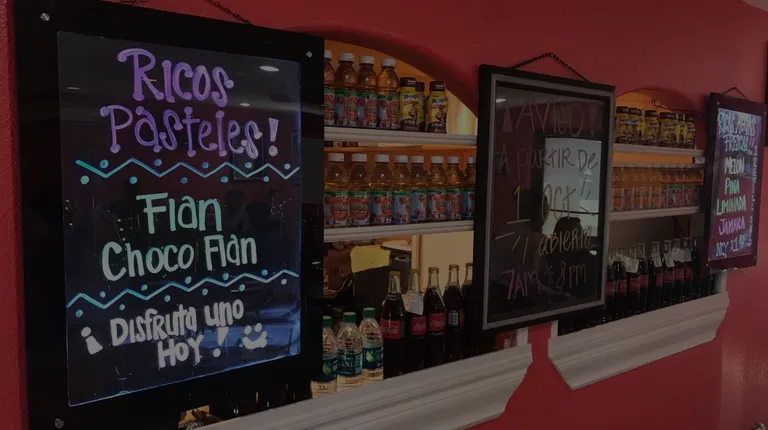 Ricos
Pasteles!
Flan
Choco Flan
¡Disfruta uno
Hoy!
¡AVISO!
A partir de
1 Oct
abierto
7am - 8pm
Ricas Aguas
Frescas
Melon
Piña
Limonada
Jamaica
Coca-Cola